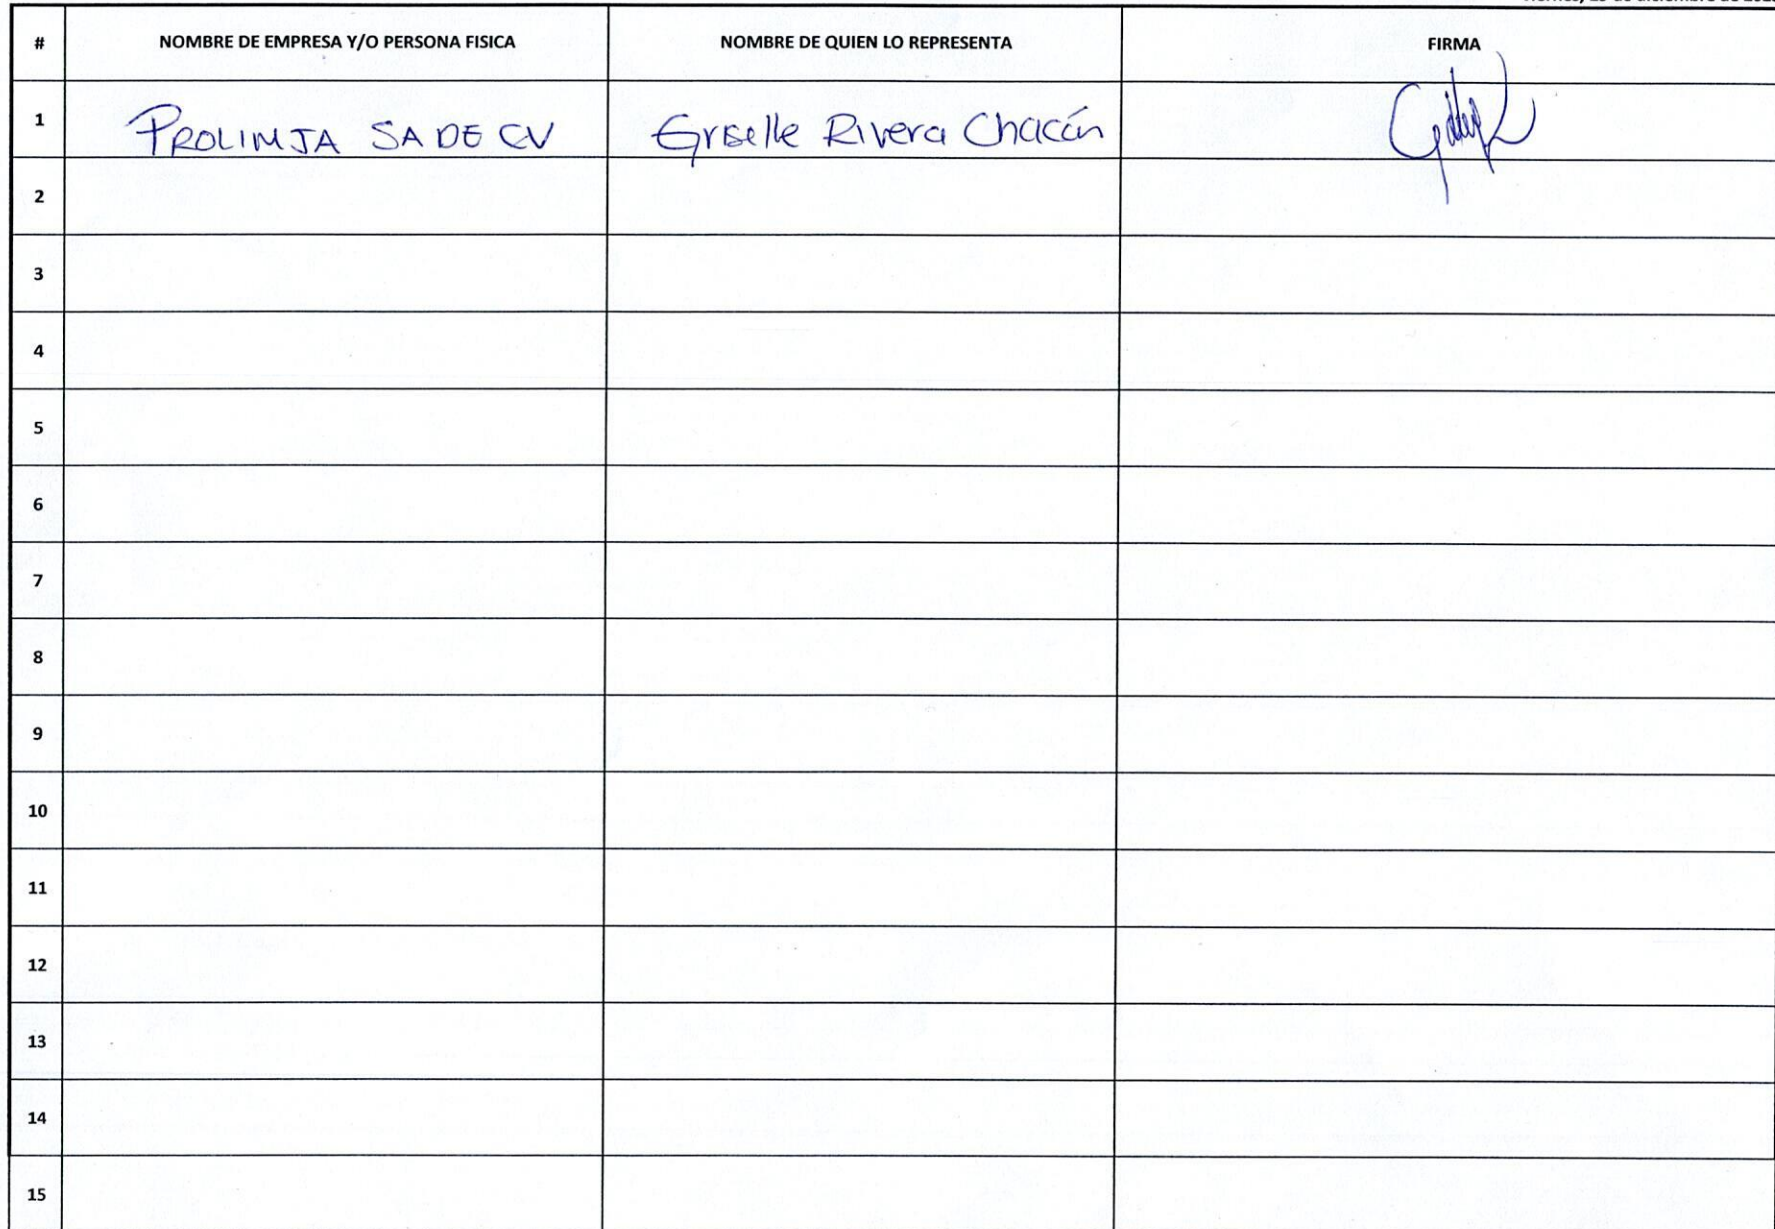 # NOMBRE DE EMPRESA Y/O PERSONA FISICA NOMBRE DE QUIEN LO REPRESENTA FIRMA
1 PROLIMJA SA DE CV Griselle Rivera Chacón
2
3
4
5
6
7
8
9
10
11
12
13
14
15